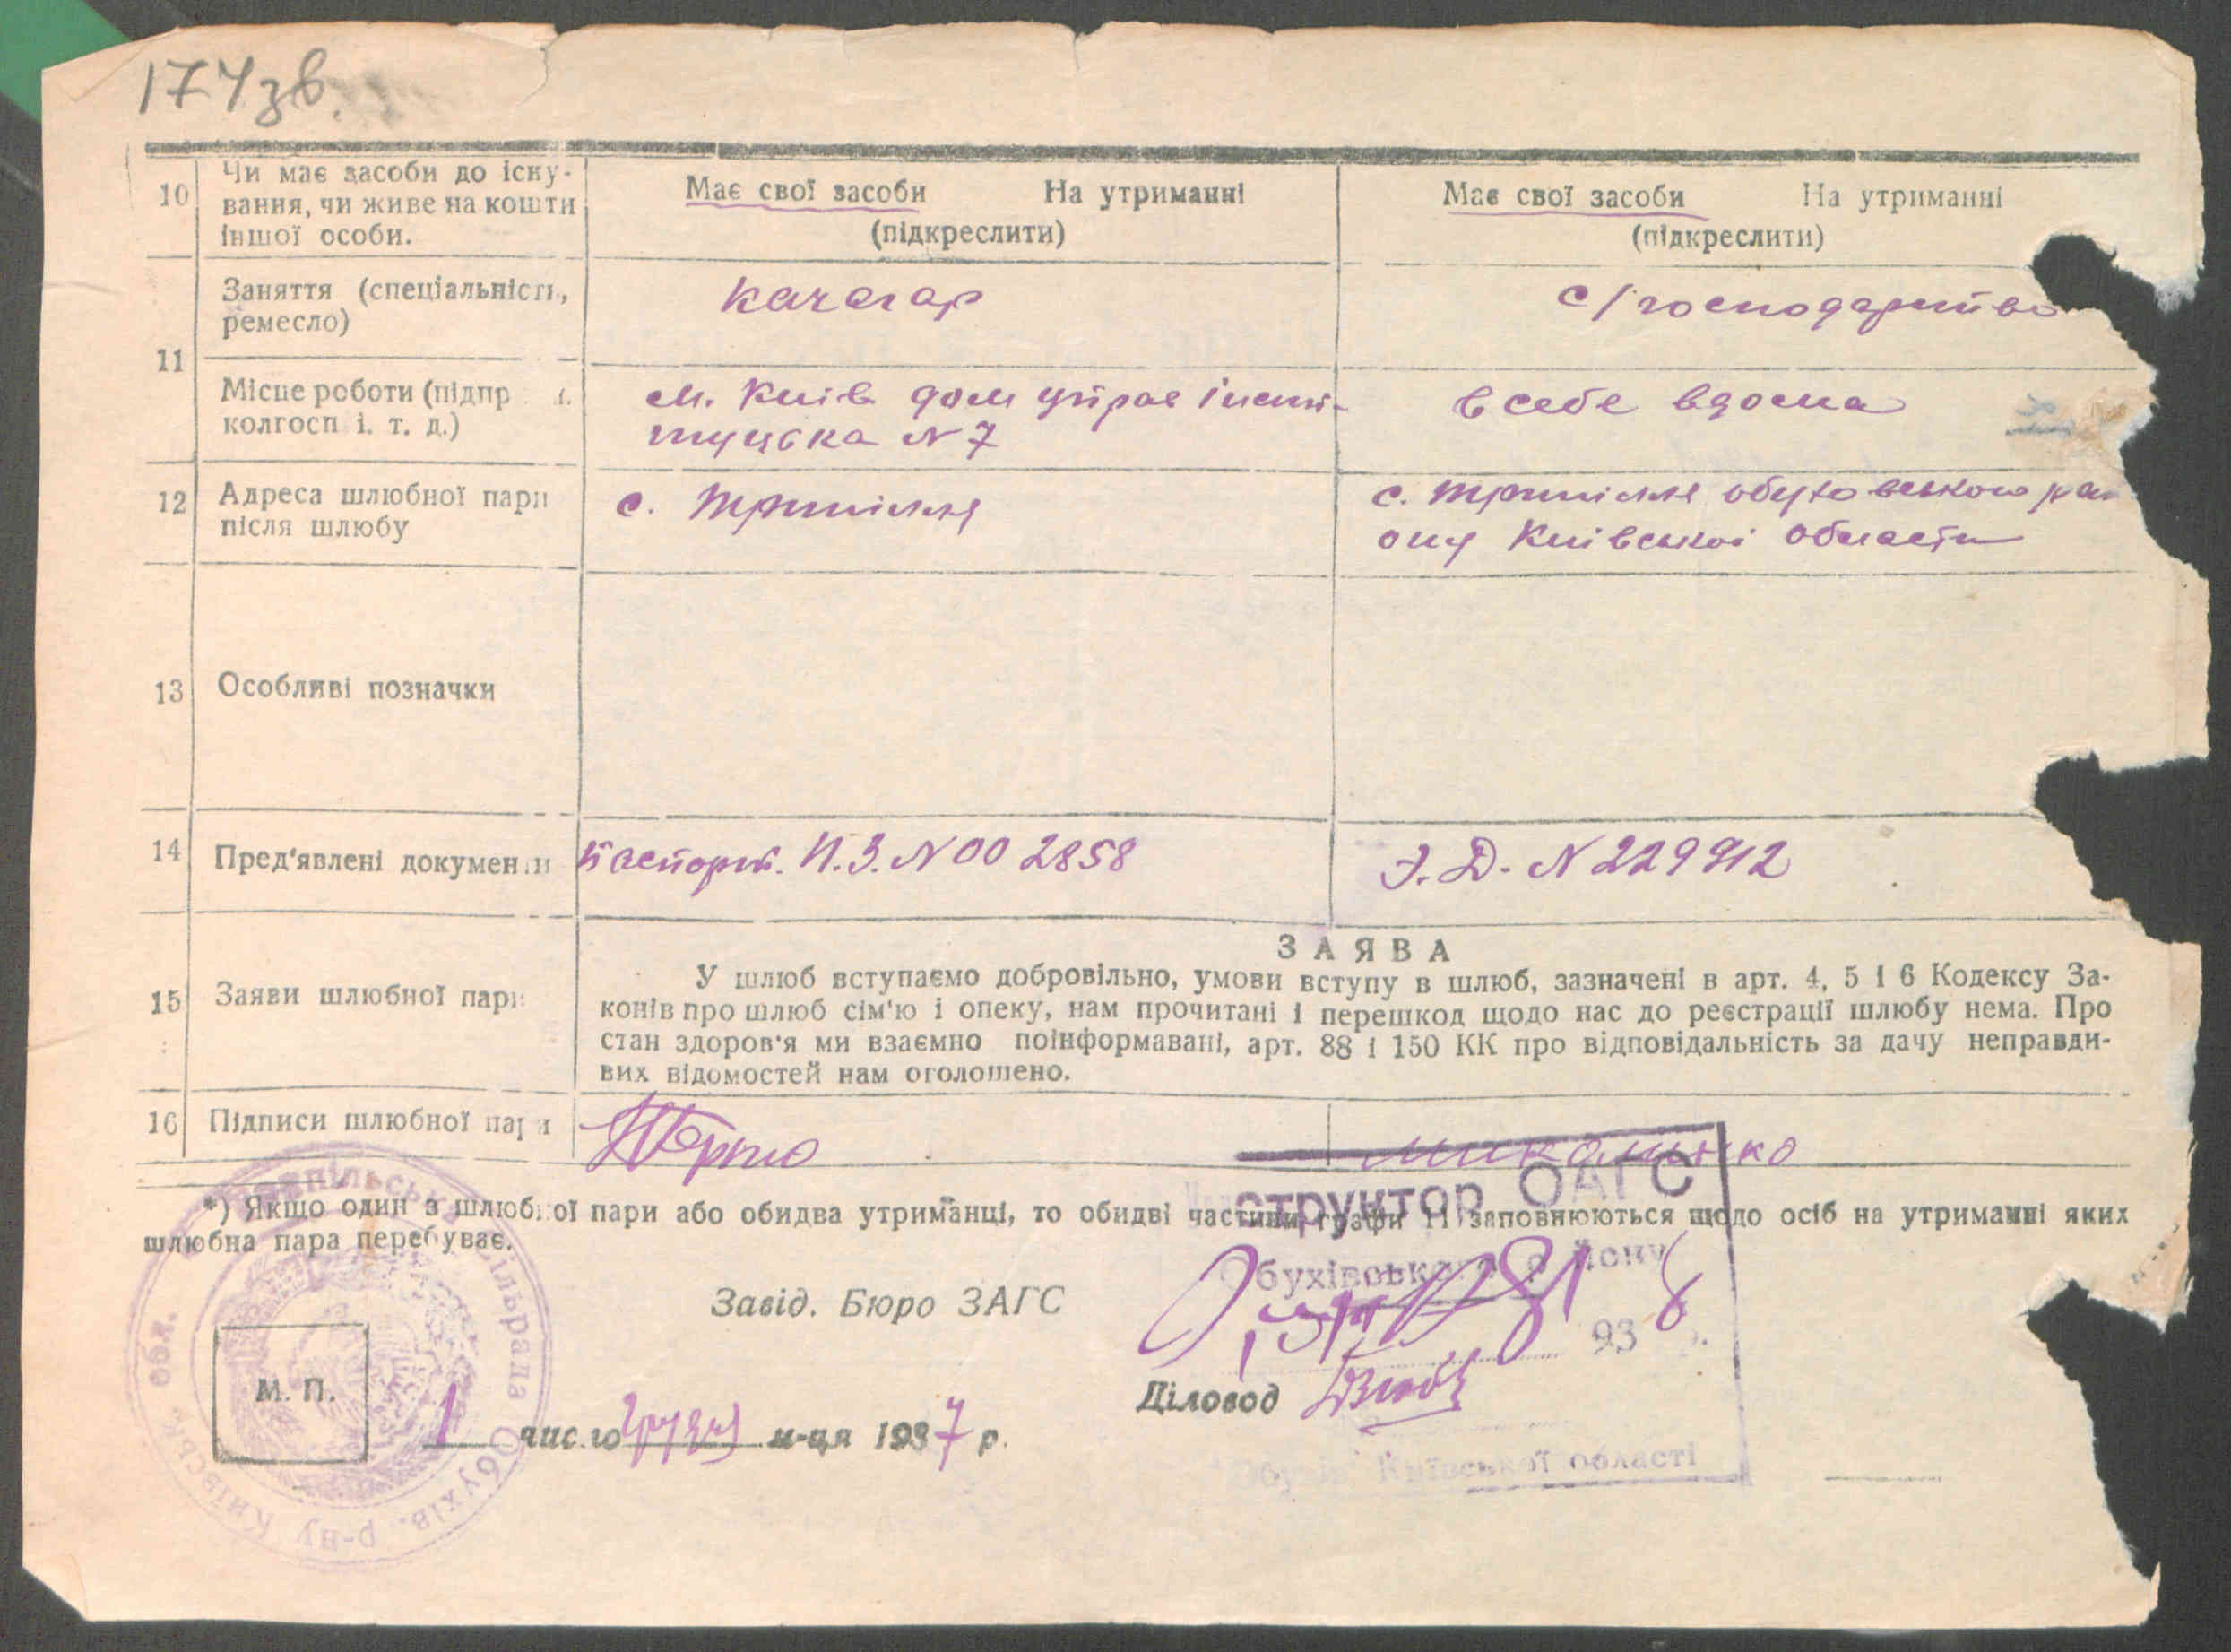 174 зв.
10 Чи має засоби до існу-
вання, чи живе на кошти
іншої особи.
Має свої засоби На утриманні
(підкреслити)
Має свої засоби На утриманні
(підкреслити)
11
Заняття (спеціальність,
ремесло)
качегар
с/господарство
Місце роботи (підпр
колгосп і. т. д.)
м. Київ дом управ Інсти-
туцька № 7
в себе вдома
12 Адреса шлюбної пари
після шлюбу
с. Трипілля
с. Трипілля обуховського рай
ону Київської области
13 Особливі позначки
14 Пред'явлені документи
паспорт. П.З. № 00 2858
З.Д. № 229912
15 Заяви шлюбної пари
ЗАЯВА
У шлюб вступаємо добровільно, умови вступу в шлюб, зазначені в арт. 4, 5 і 6 Кодексу За-
конів про шлюб сім'ю і опеку, нам прочитані і перешкод щодо нас до реєстрації шлюбу нема. Про
стан здоров'я ми взаємно поінформавані, арт. 88 і 150 КК про відповідальність за дачу неправди-
вих відомостей нам оголошено.
16 Підписи шлюбної пари
*) Якщо один з шлюбної пари або обидва утриманці, то обидві частини графи 11 заповнюються щодо осіб на утриманні яких
шлюбна пара перебуває.
структор ОАГС
Обухівського району
Завід. Бюро ЗАГС
1938
Діловод
М. П.
1 число грудня м-ця 1937 р.
Київської області
сільрада Обухів. р-ву Київськ. обл.